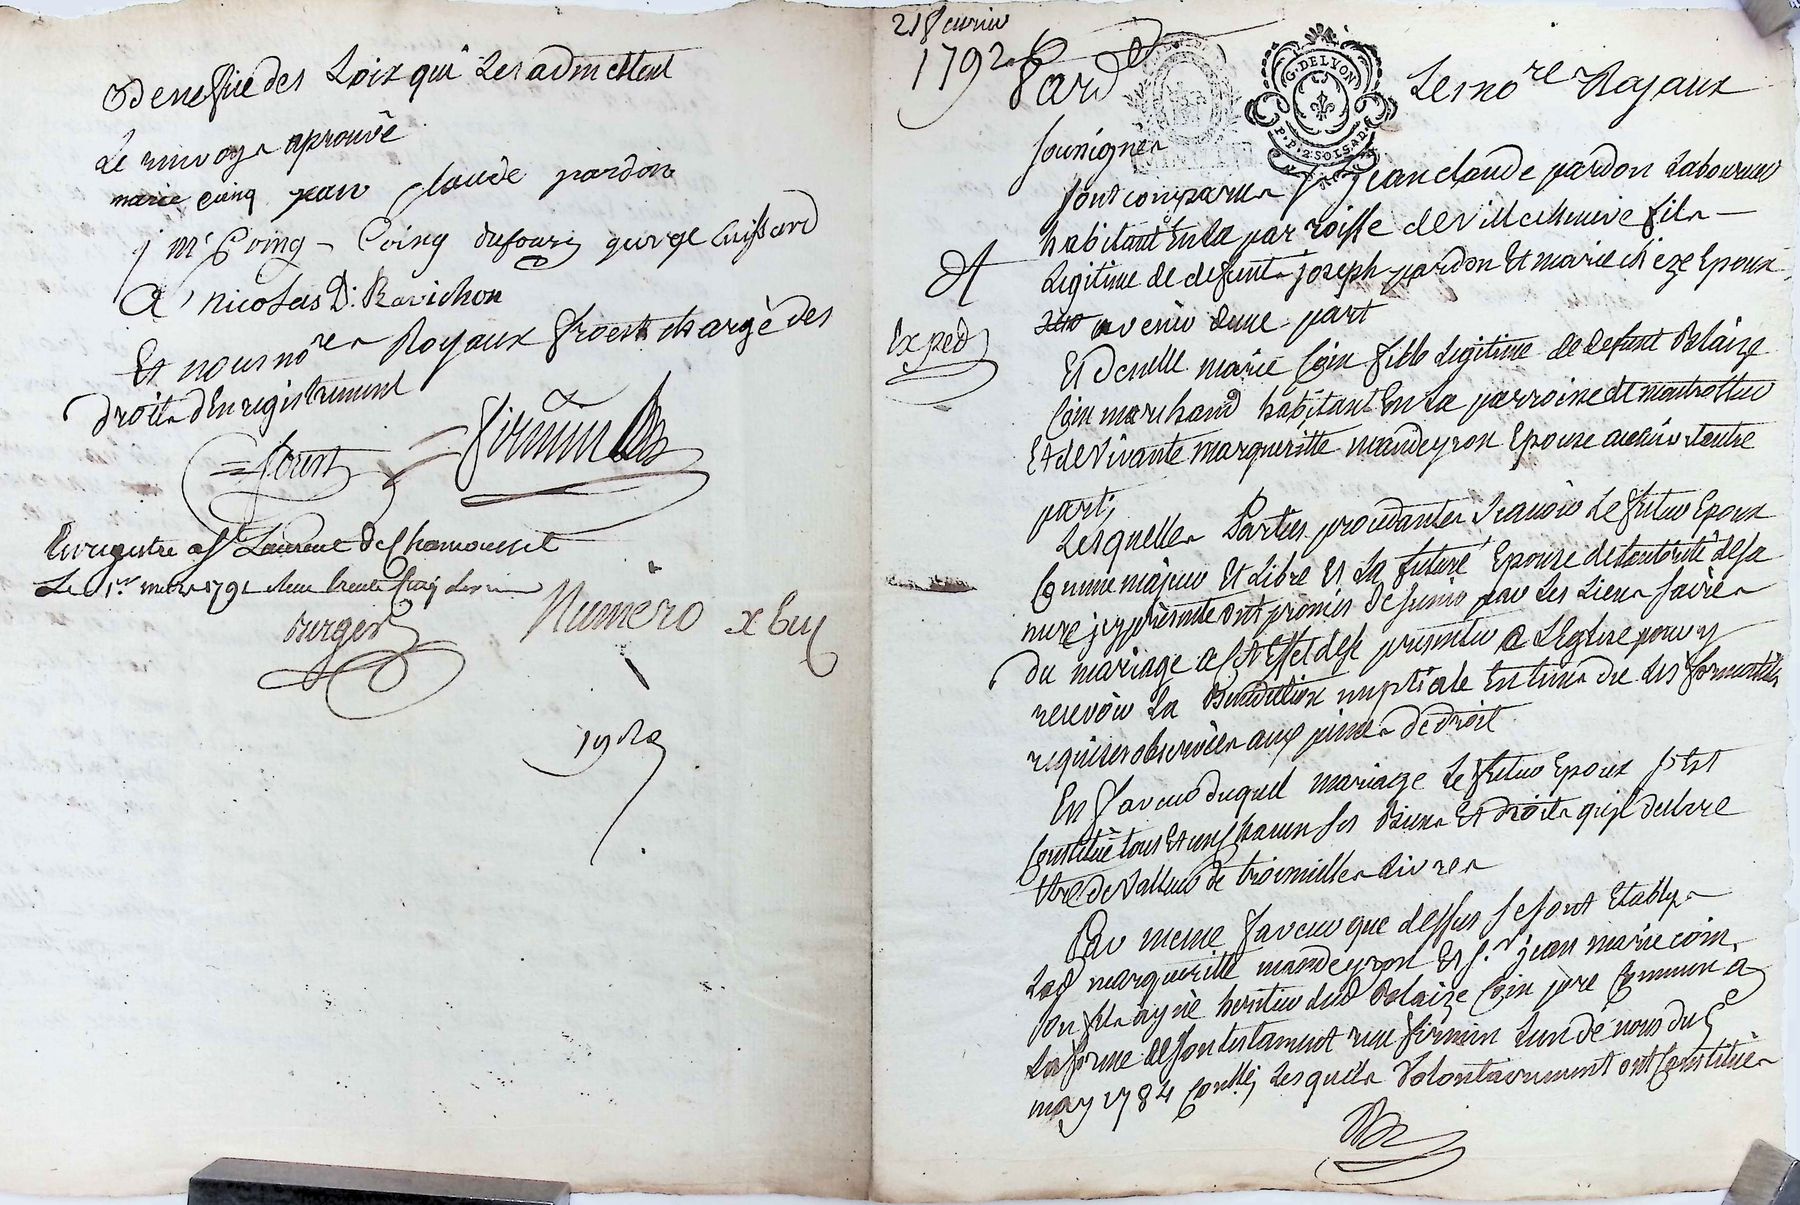 Benefice des Loix qui les admettent
Le renvoy aprouvé
marie coing jean claude pardon
j m Coing Coing dufour george Cuissard
nicolas D. Ravichon
Et nous no.re Royaux chargé des
droits d'Enregistrement
Firmin
Enregistré a St Laurent de Chamousset
Le 1.er mars 1791
burger
Numero
192
21 fevrier
1792
G. DE LYON
P. P. 2 SOLS. A. D.
Pard Les no.re Royaux
soussignés
Sont comparus S. jean claude pardon Laboureur
habitant En la parroisse de Villechenève fils
Legitime de defunts joseph pardon Et marie Epoux
avenir d'une part
Exped
Et demlle marie Coin fille Legitime de defunt Blaize
Coin marchand habitant En La parroisse de montrottier
Et de Vivante margueritte mandeyron Epouse avenir d'autre
part,
Lesquelles Parties procedantes Scavoir Le futur Epoux
Comme majeur Et Libre Et La future Epouse de L'autorité de sa
mere jcy présente ont promis de s'unir par Les Liens sacrés
du mariage a cet Effet de se presenter a L'Eglise pour y
recevoir La Benediction nuptiale Les formalités
requises observées aux peines de droit
En faveur duquel mariage Le futur Epoux s'est
Constitué tous Et un chacun ses Biens Et droits qu'jl declare
Etre de Valleur de trois milles Livres
Par meme faveur que dessus se sont Etablys
Lad margueritte mandeyron Et S.r jean marie coin
son fils ayné heritier dud Blaize Coin pere Commun a
La forme de son testament reçu Firmin L'un de nous du
may 1784 Conllé, Lesquels Volontairement ont Constitué